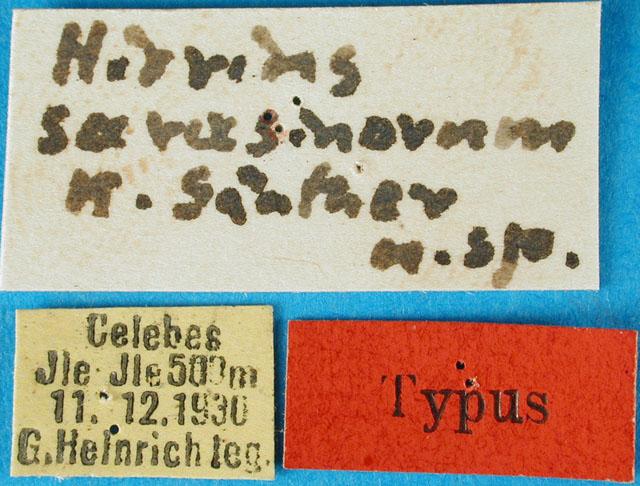 Hirrius
sarasinorum
K. Günther
n.sp.
Celebes
Jle Jle 500m
11. 12.1930
G.Heinrich leg.
Typus